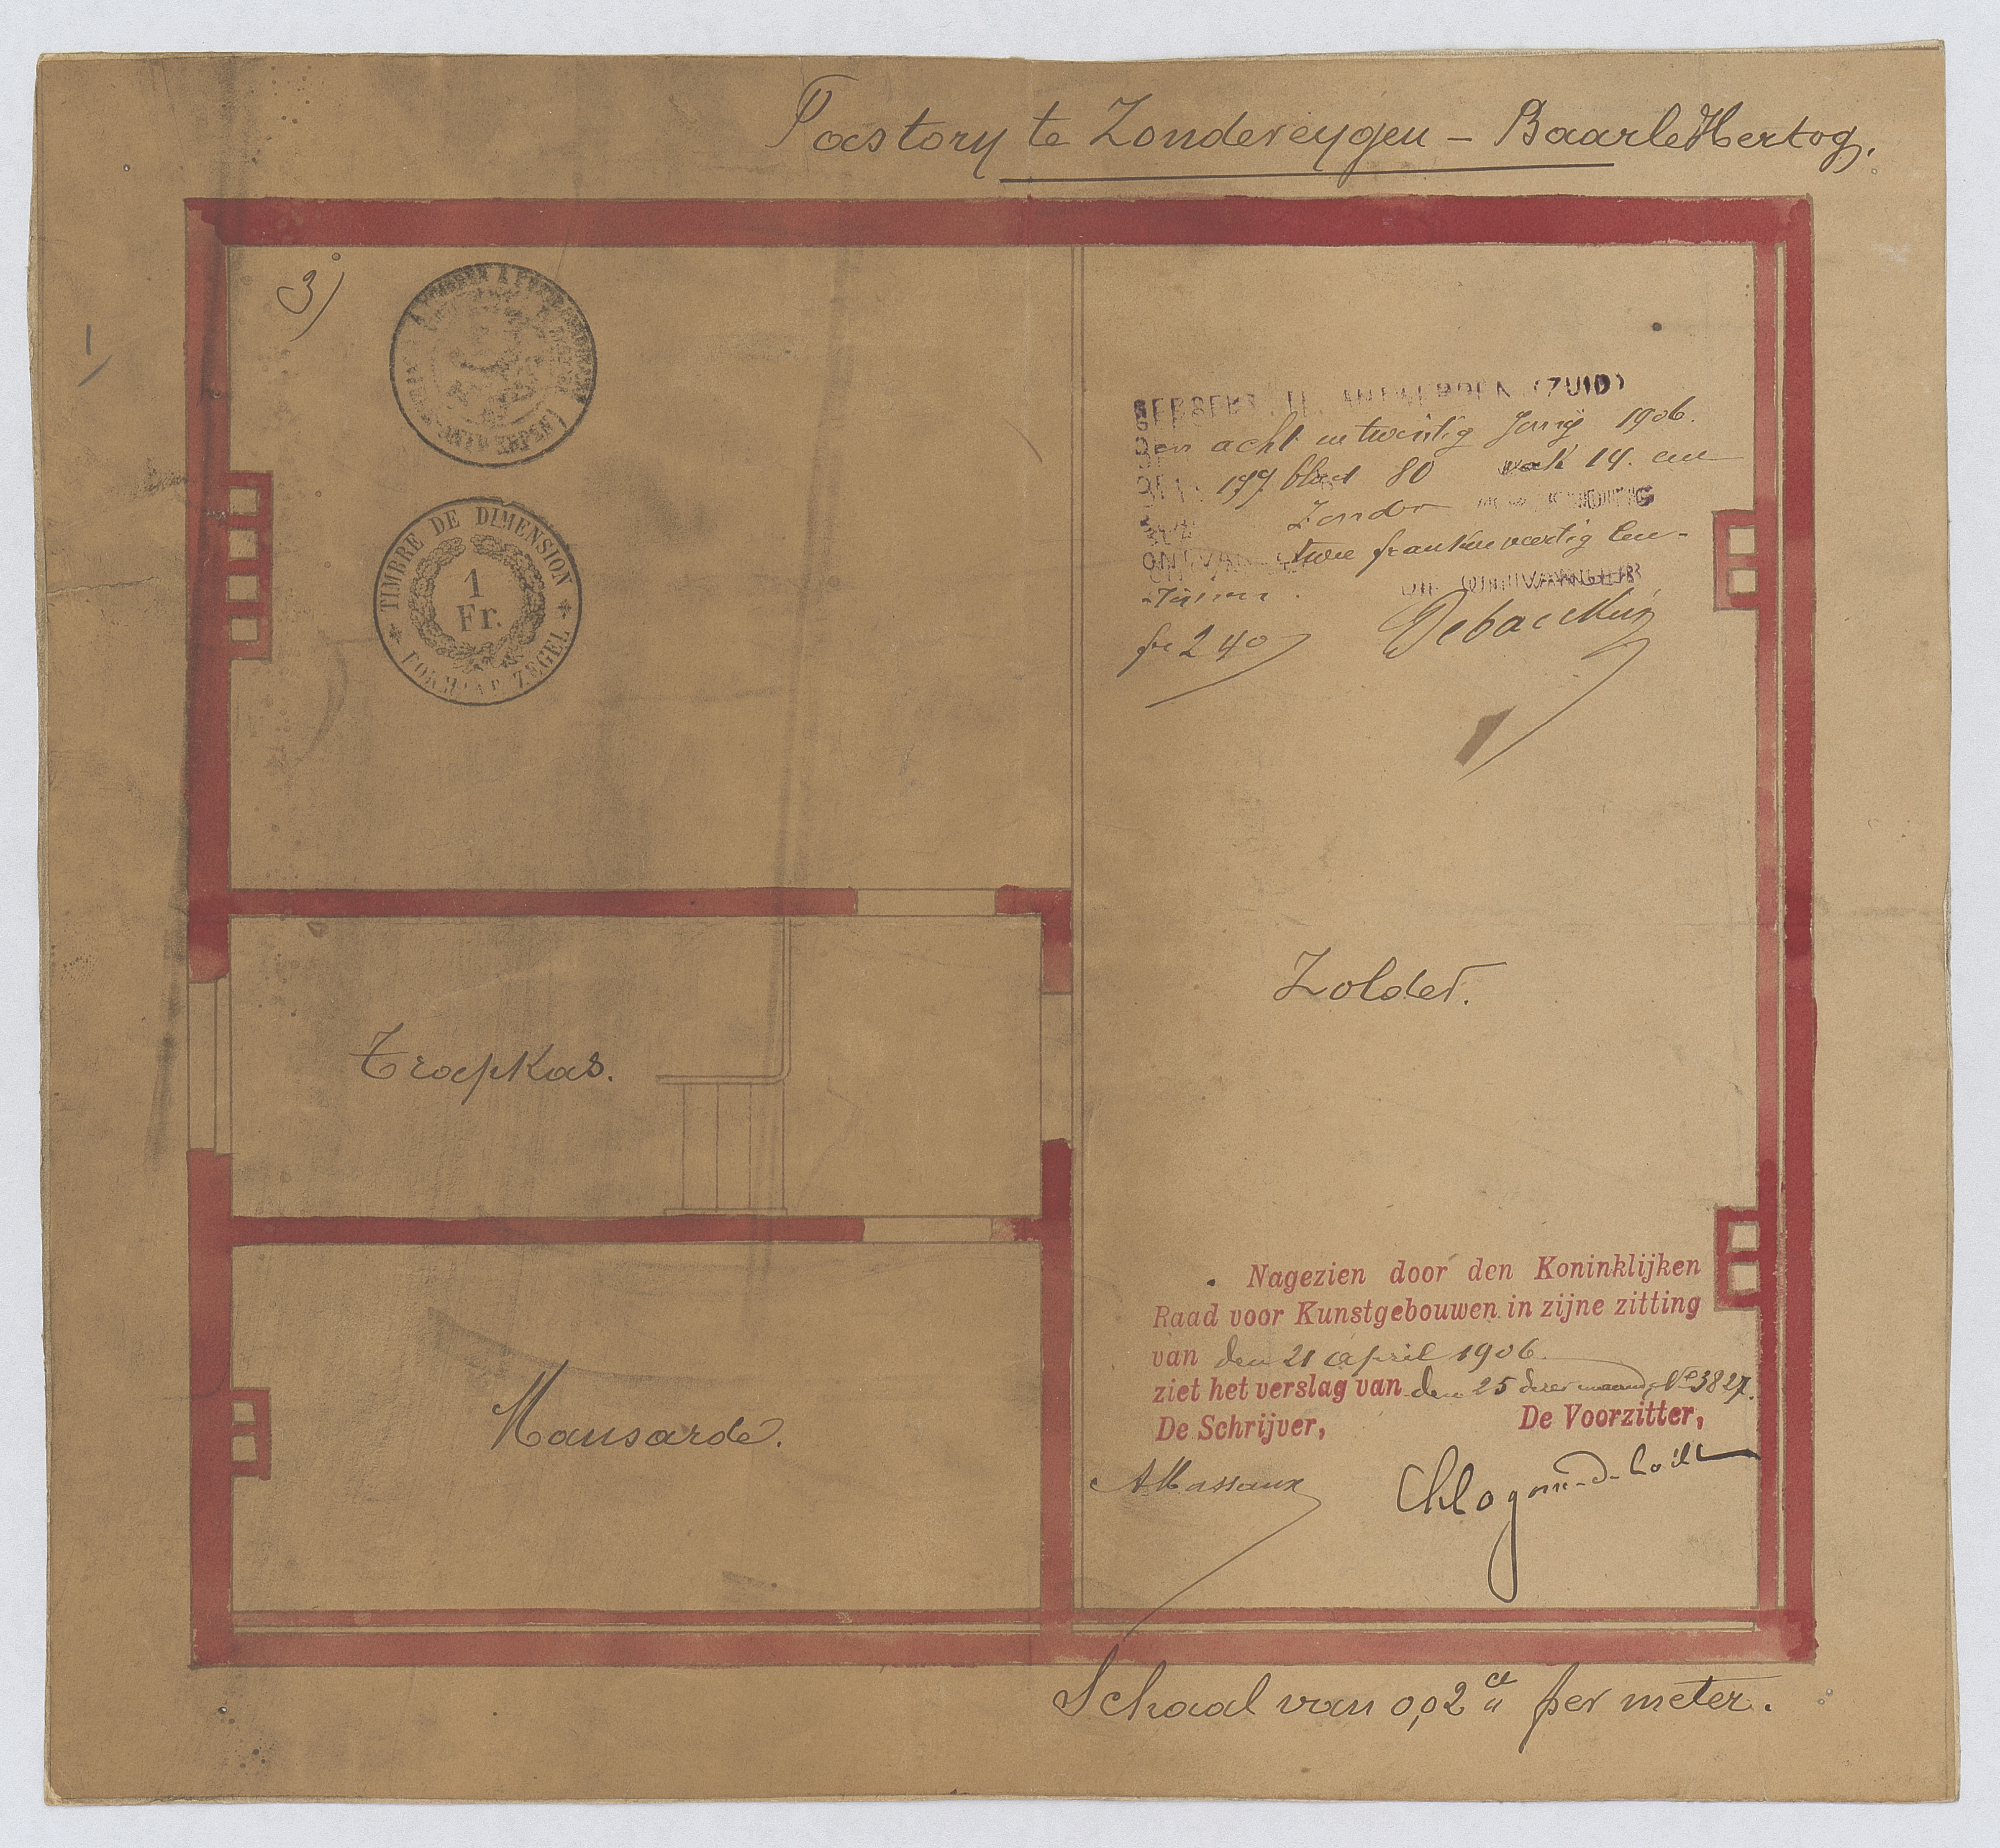 Pastory te Zondereygen – Baarle Hertog.
3)
TIMBRE DE DIMENSION
1
Fr.
ZEGEL
ANTWERPEN (ZUID)
Den acht en twintig Juny 1906.
199 blad 80 vak 14. een
Zonder
twee franken veertig cen-
timen.
fr 2 40
Zolder.
Trapkas.
Nagezien door den Koninklijken
Raad voor Kunstgebouwen in zijne zitting
van den 21 april 1906.
ziet het verslag van den 25 dezer maand, No 3827.
De Schrijver, De Voorzitter,
AMassaux
Mansarde.
Schaal van 0,02 per meter.